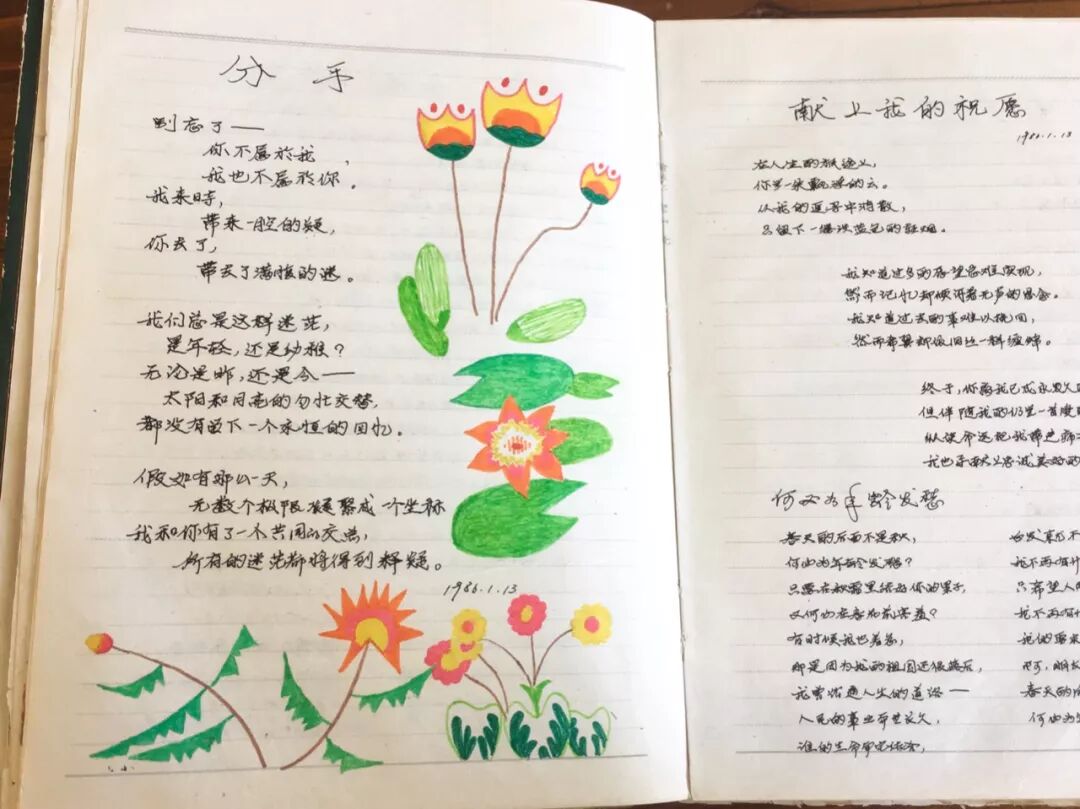 分 手
别忘了——
你不属於我,
我也不属於你。
我来时,
带来一腔的疑,
你去了,
带去了满怀的迷。
我们总是这样迷茫,
是年轻,还是幼稚?
无论是昨,还是今——
太阳和月亮的匆忙交替,
都没有留下一个永恒的回忆。
假如有那么一天,
无数个极限凝聚成一个坐标
我和你有了一个共同的交点,
所有的迷茫都将得到释疑。
1986.1.13
献上我的祝愿
1986.1.13
在人生的旅途上,
你岁一朵飘逸的云。
从我的
中消散,
只留下一缕淡蓝色的轻烟。
我知道过多的希望总难实现,
然而记忆却倾诉着无声的思念。
我知道过去的事难以挽回,
然而希冀却像旧丝一样缠绊。
终于,你离我已成永久
但伴随我的仍是一首
纵使命运把我带进
我也要献上忠诚美好的
何必为年龄发愁
春天的后面不是秋,
何必为年龄发愁?
只要在秋霜里结好你的果子,
又何必在春花前害羞?
有时候我也着急,
那是因为我的祖国还很落后,
我曾
过人生的道路——
人民的事业
长久,
谁的生命
白发真不
我不再有什
只希望人
我不再有什
我的
春天的后
何必为